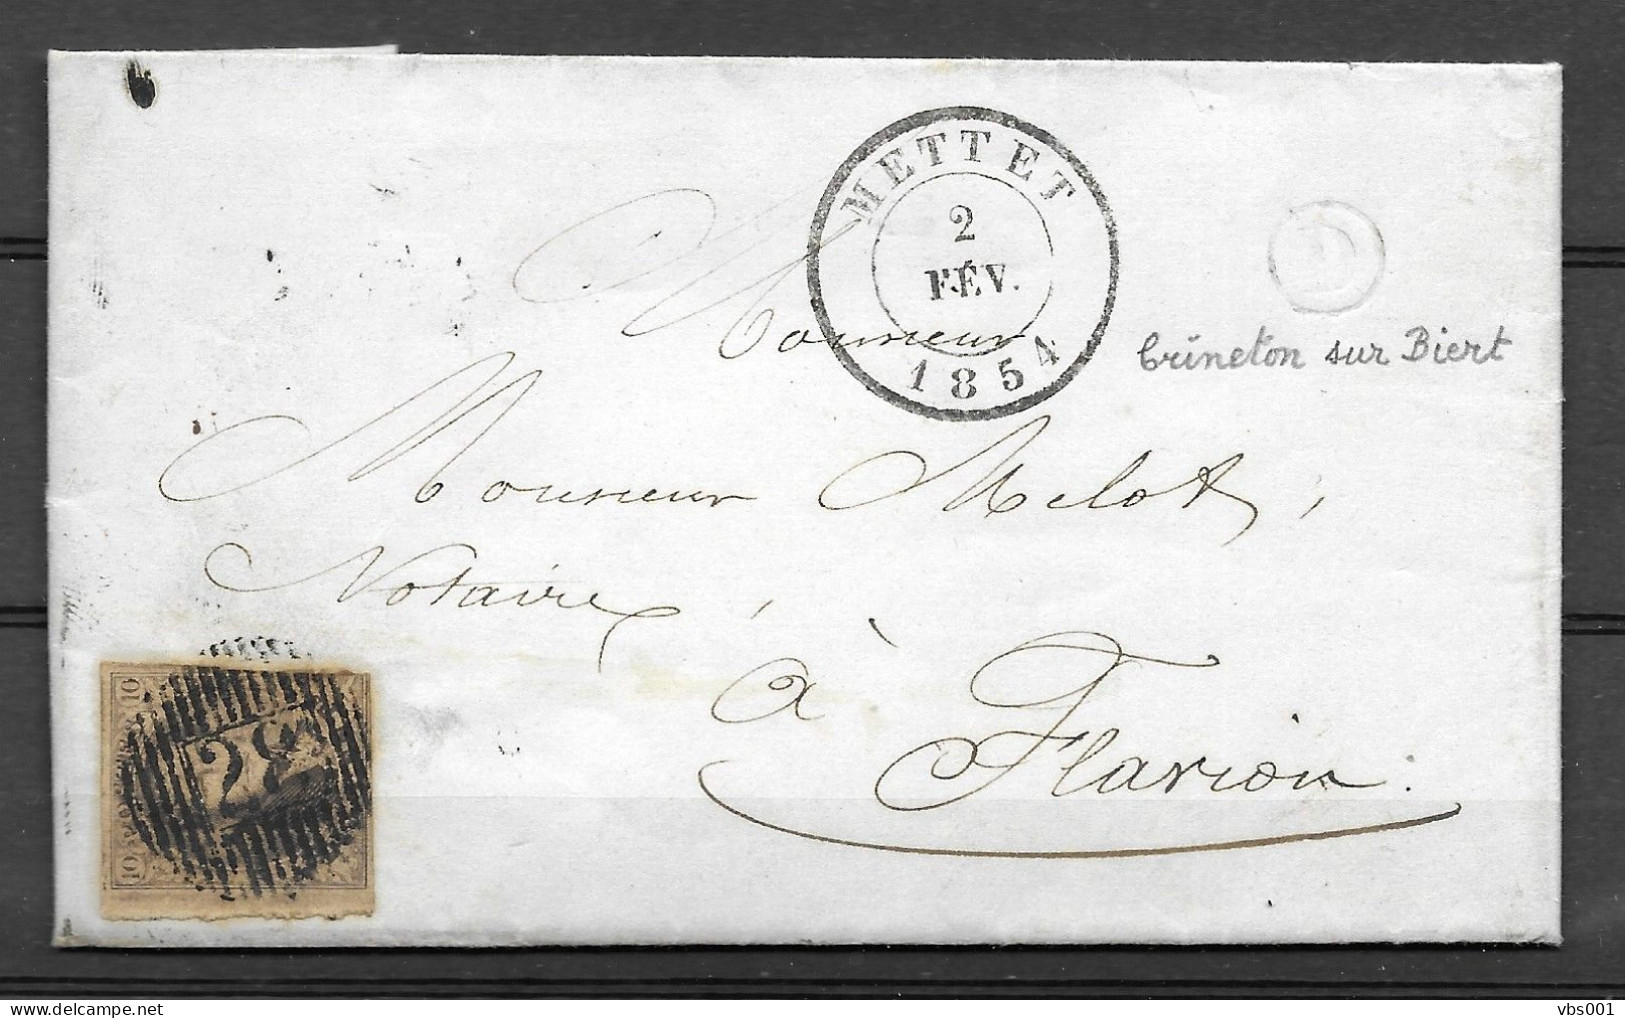 METTET
2
FÉV.
1854
D
Crineton sur Biert
Monsieur
Monsieur Melot,
Notaire,
à
Flavion.
10 10
28
10
vbs001